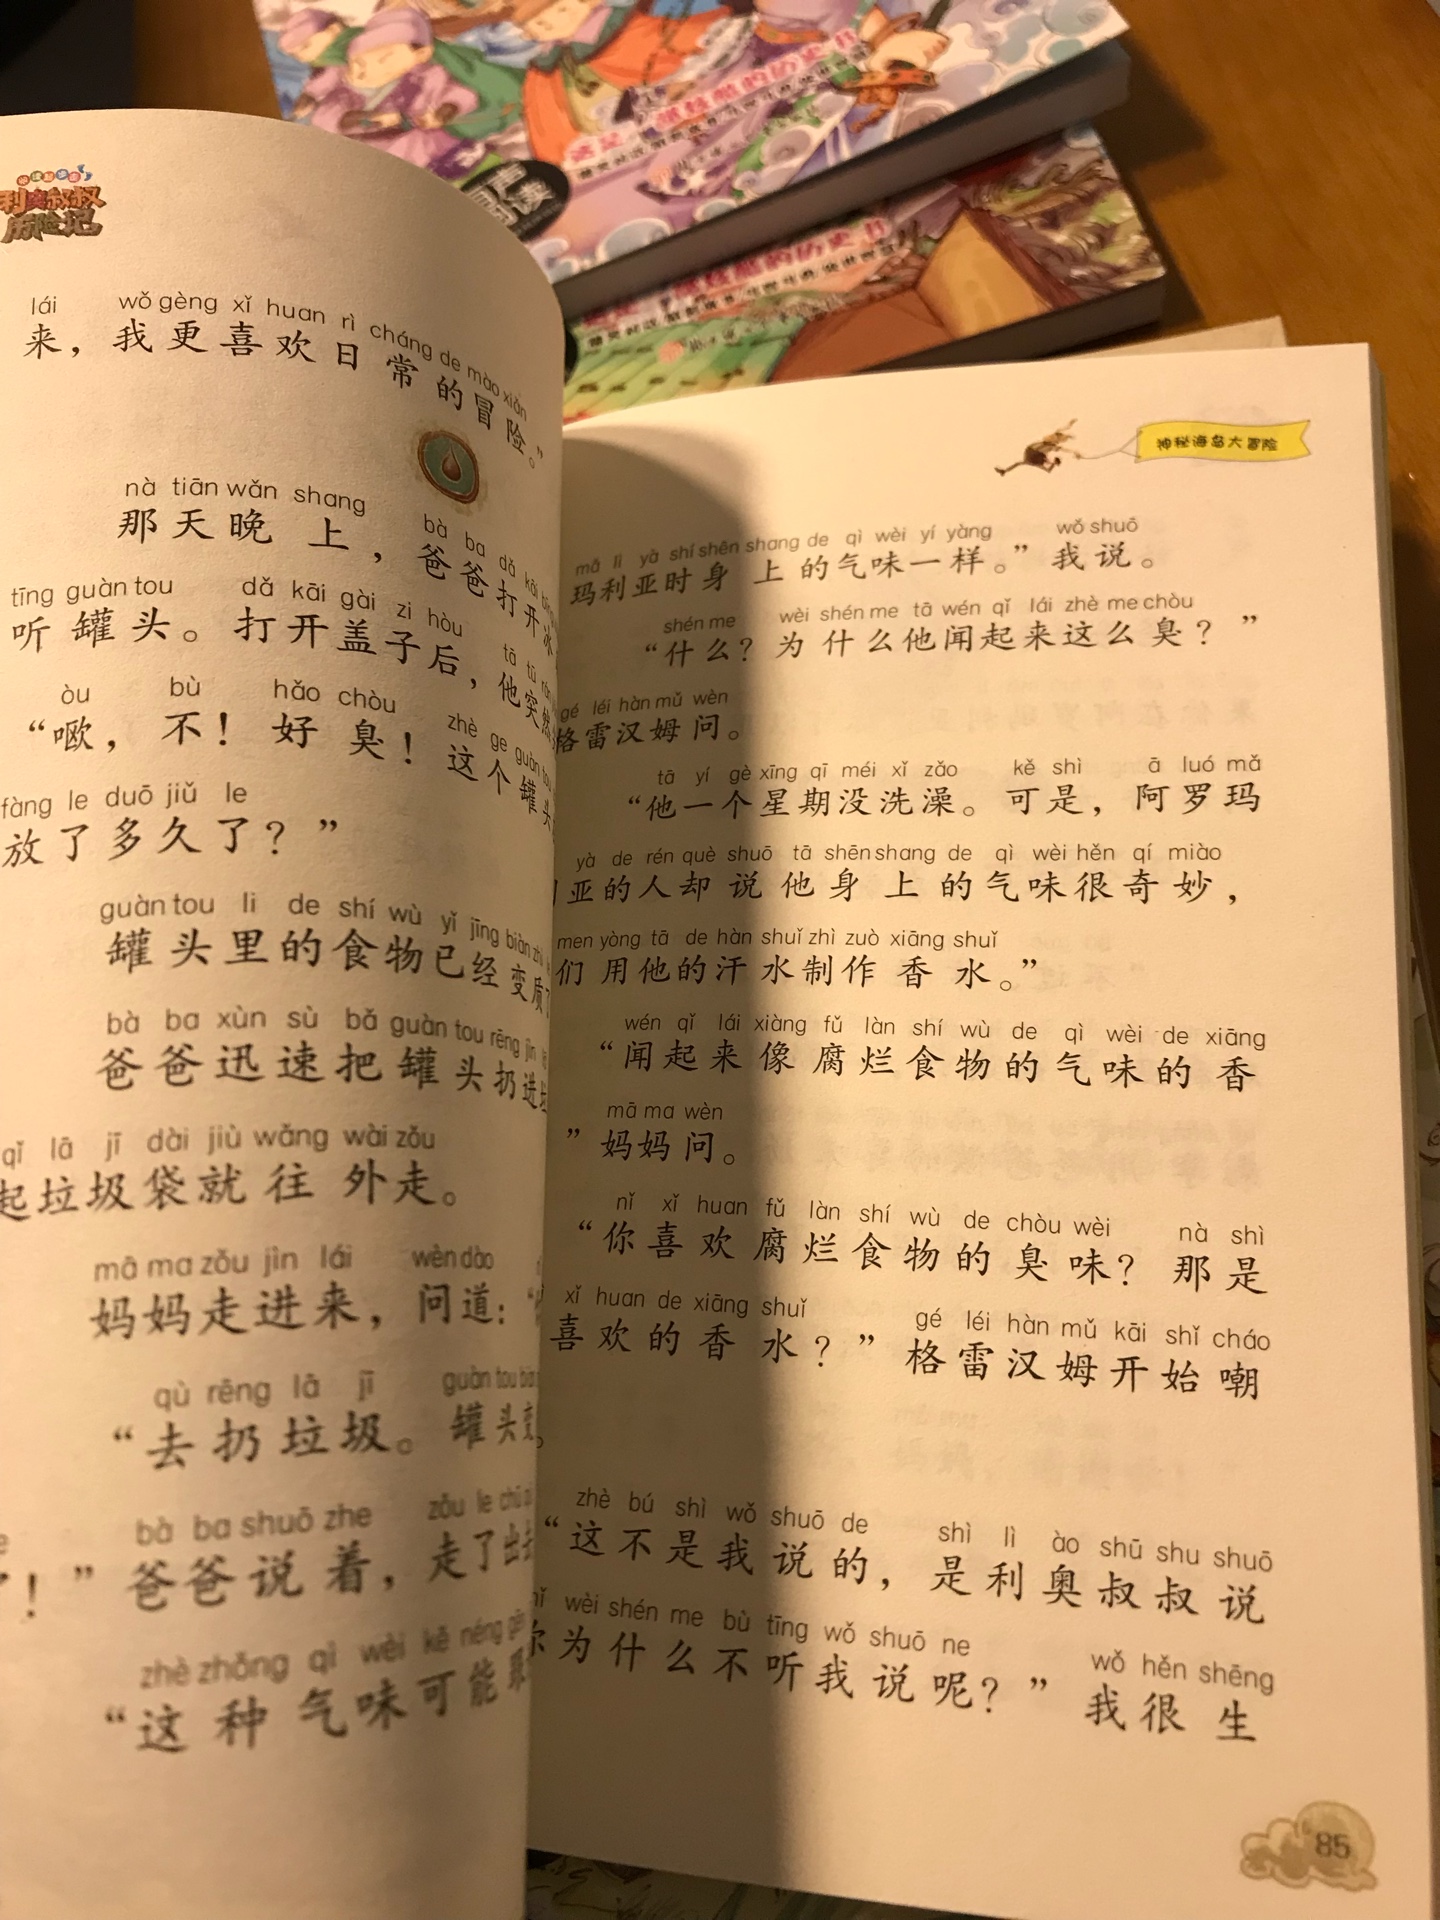 利奥叔叔
历险记
lái wǒ gèng xǐ huan rì cháng de mào xiǎn
来，我更喜欢日常的冒险。”
nà tiān wǎn shang bà ba dǎ kāi
那天晚上，爸爸打开冰
tīng guàn tou dǎ kāi gài zi hòu tā tū
听罐头。打开盖子后，他突
òu bù hǎo chòu zhè ge guàn tou
“呕，不！好臭！这个罐头
fàng le duō jiǔ le
放了多久了？”
guàn tou li de shí wù yǐ jīng biàn zhì
罐头里的食物已经变质
bà ba xùn sù bǎ guàn tou rēng jìn
爸爸迅速把罐头扔进
qǐ lā jī dài jiù wǎng wài zǒu
起垃圾袋就往外走。
mā ma zǒu jìn lái wèn dào
妈妈走进来，问道：“
qù rēng lā jī guàn tou
“去扔垃圾。罐头变
bà ba shuō zhe zǒu le chū
！”爸爸说着，走了出去
zhè zhǒng qì wèi kě néng
“这种气味可能
神秘海岛大冒险
mǎ lì yà shí shēn shang de qì wèi yí yàng wǒ shuō
玛利亚时身上的气味一样。”我说。
shén me wèi shén me tā wén qǐ lái zhè me chòu
“什么？为什么他闻起来这么臭？”
gé léi hàn mǔ wèn
格雷汉姆问。
tā yí gè xīng qī méi xǐ zǎo kě shì ā luó mǎ
“他一个星期没洗澡。可是，阿罗玛
yà de rén què shuō tā shēn shang de qì wèi hěn qí miào
亚的人却说他身上的气味很奇妙，
men yòng tā de hàn shuǐ zhì zuò xiāng shuǐ
们用他的汗水制作香水。”
wén qǐ lái xiàng fǔ làn shí wù de qì wèi de xiāng
“闻起来像腐烂食物的气味的香
mā ma wèn
”妈妈问。
nǐ xǐ huan fǔ làn shí wù de chòu wèi nà shì
“你喜欢腐烂食物的臭味？那是
xǐ huan de xiāng shuǐ gé léi hàn mǔ kāi shǐ cháo
喜欢的香水？”格雷汉姆开始嘲
zhè bú shì wǒ shuō de shì lì ào shū shu shuō
“这不是我说的，是利奥叔叔说
nǐ wèi shén me bù tīng wǒ shuō ne wǒ hěn shēng
你为什么不听我说呢？”我很生
85